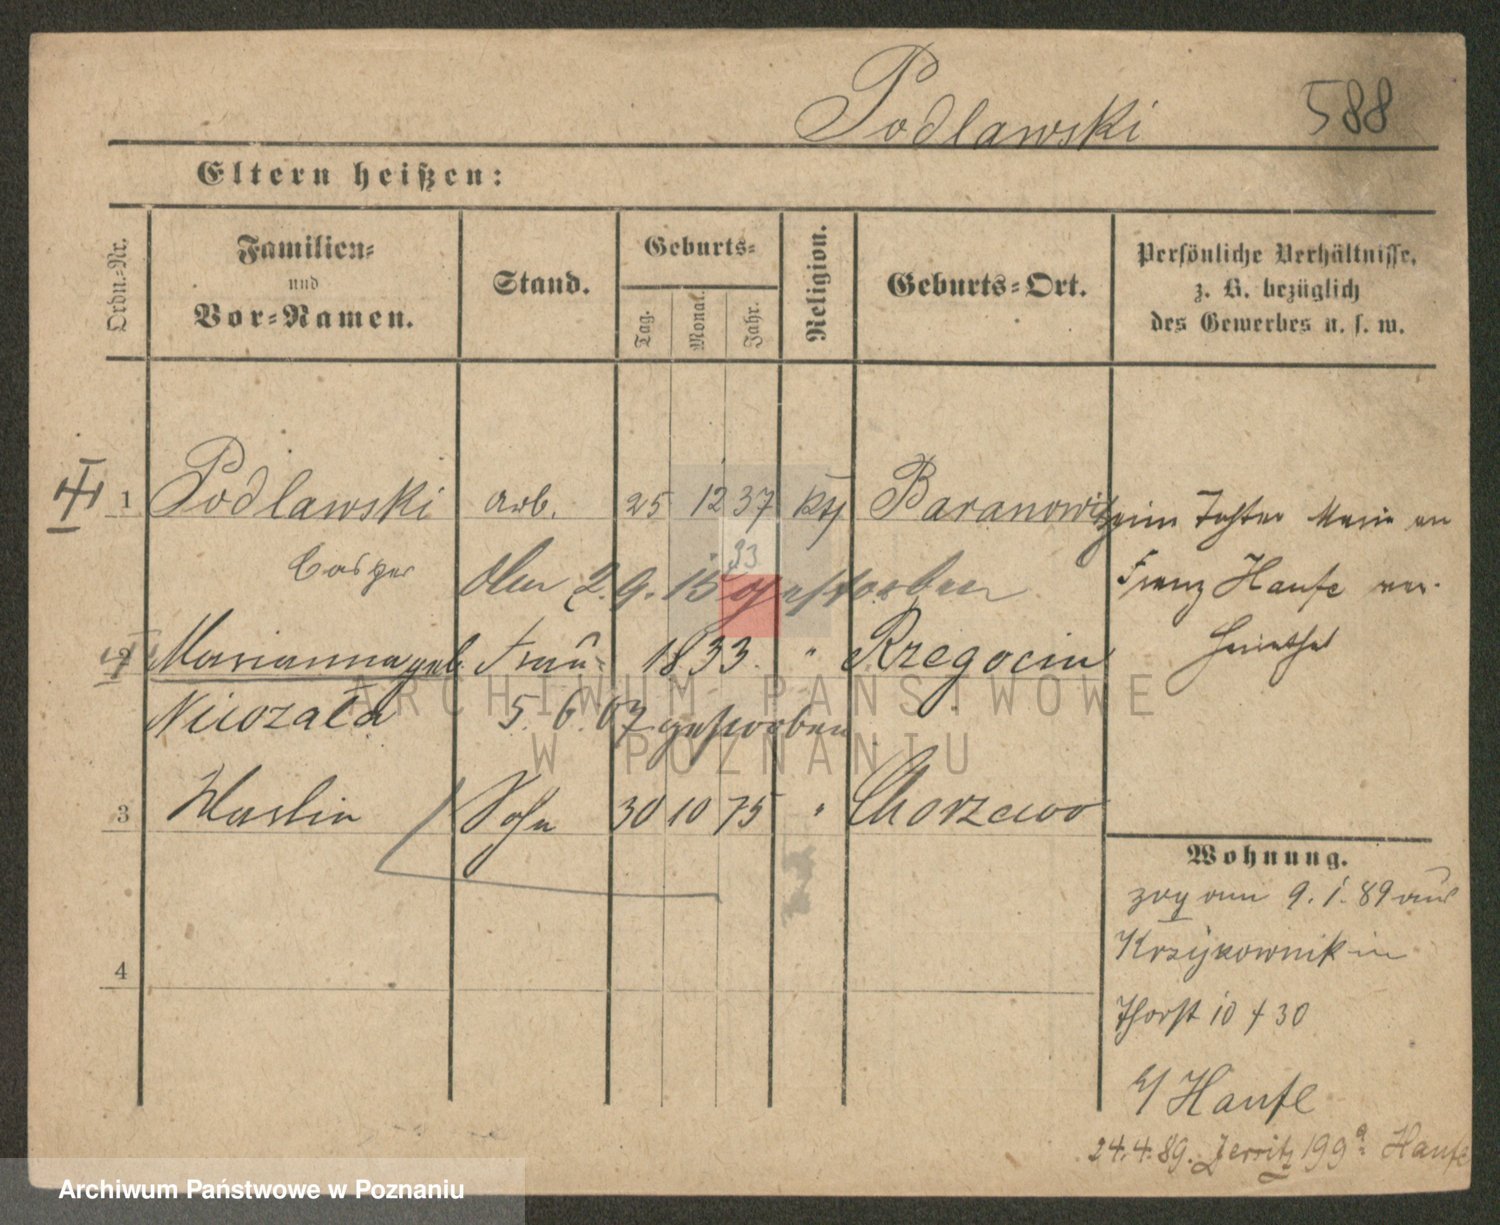 Podlawski 588
Eltern heißen:
Ordn.-Nr.
Familien-
und
Vor-Namen.
Stand.
Geburts-
Tag.
Monat.
Jahr.
Religion.
Geburts-Ort.
Persönliche Verhältnisse,
z. B. bezüglich
des Gewerbes u. s. w.
1 Podlawski arb. 25 12 37 kth Baranowitz
33
Casper den 2. 9. 15 gestorben
2 Marianna geb. Frau 1833. " Rzegocin
5. 6. 07 gestorben
3 Sohn 30 10 75 " Chorzewo
4
Tochter Marie an
Franz Haufe ver-
heirathet
Wohnung.
zog am 9. 1. 89 aus
in
Thorst 10 f 30
b/ Haufe
24.4.89. Jersitz 199a Haufe
ARCHIWUM PAŃSTWOWE
W POZNANIU
Archiwum Państwowe w Poznaniu